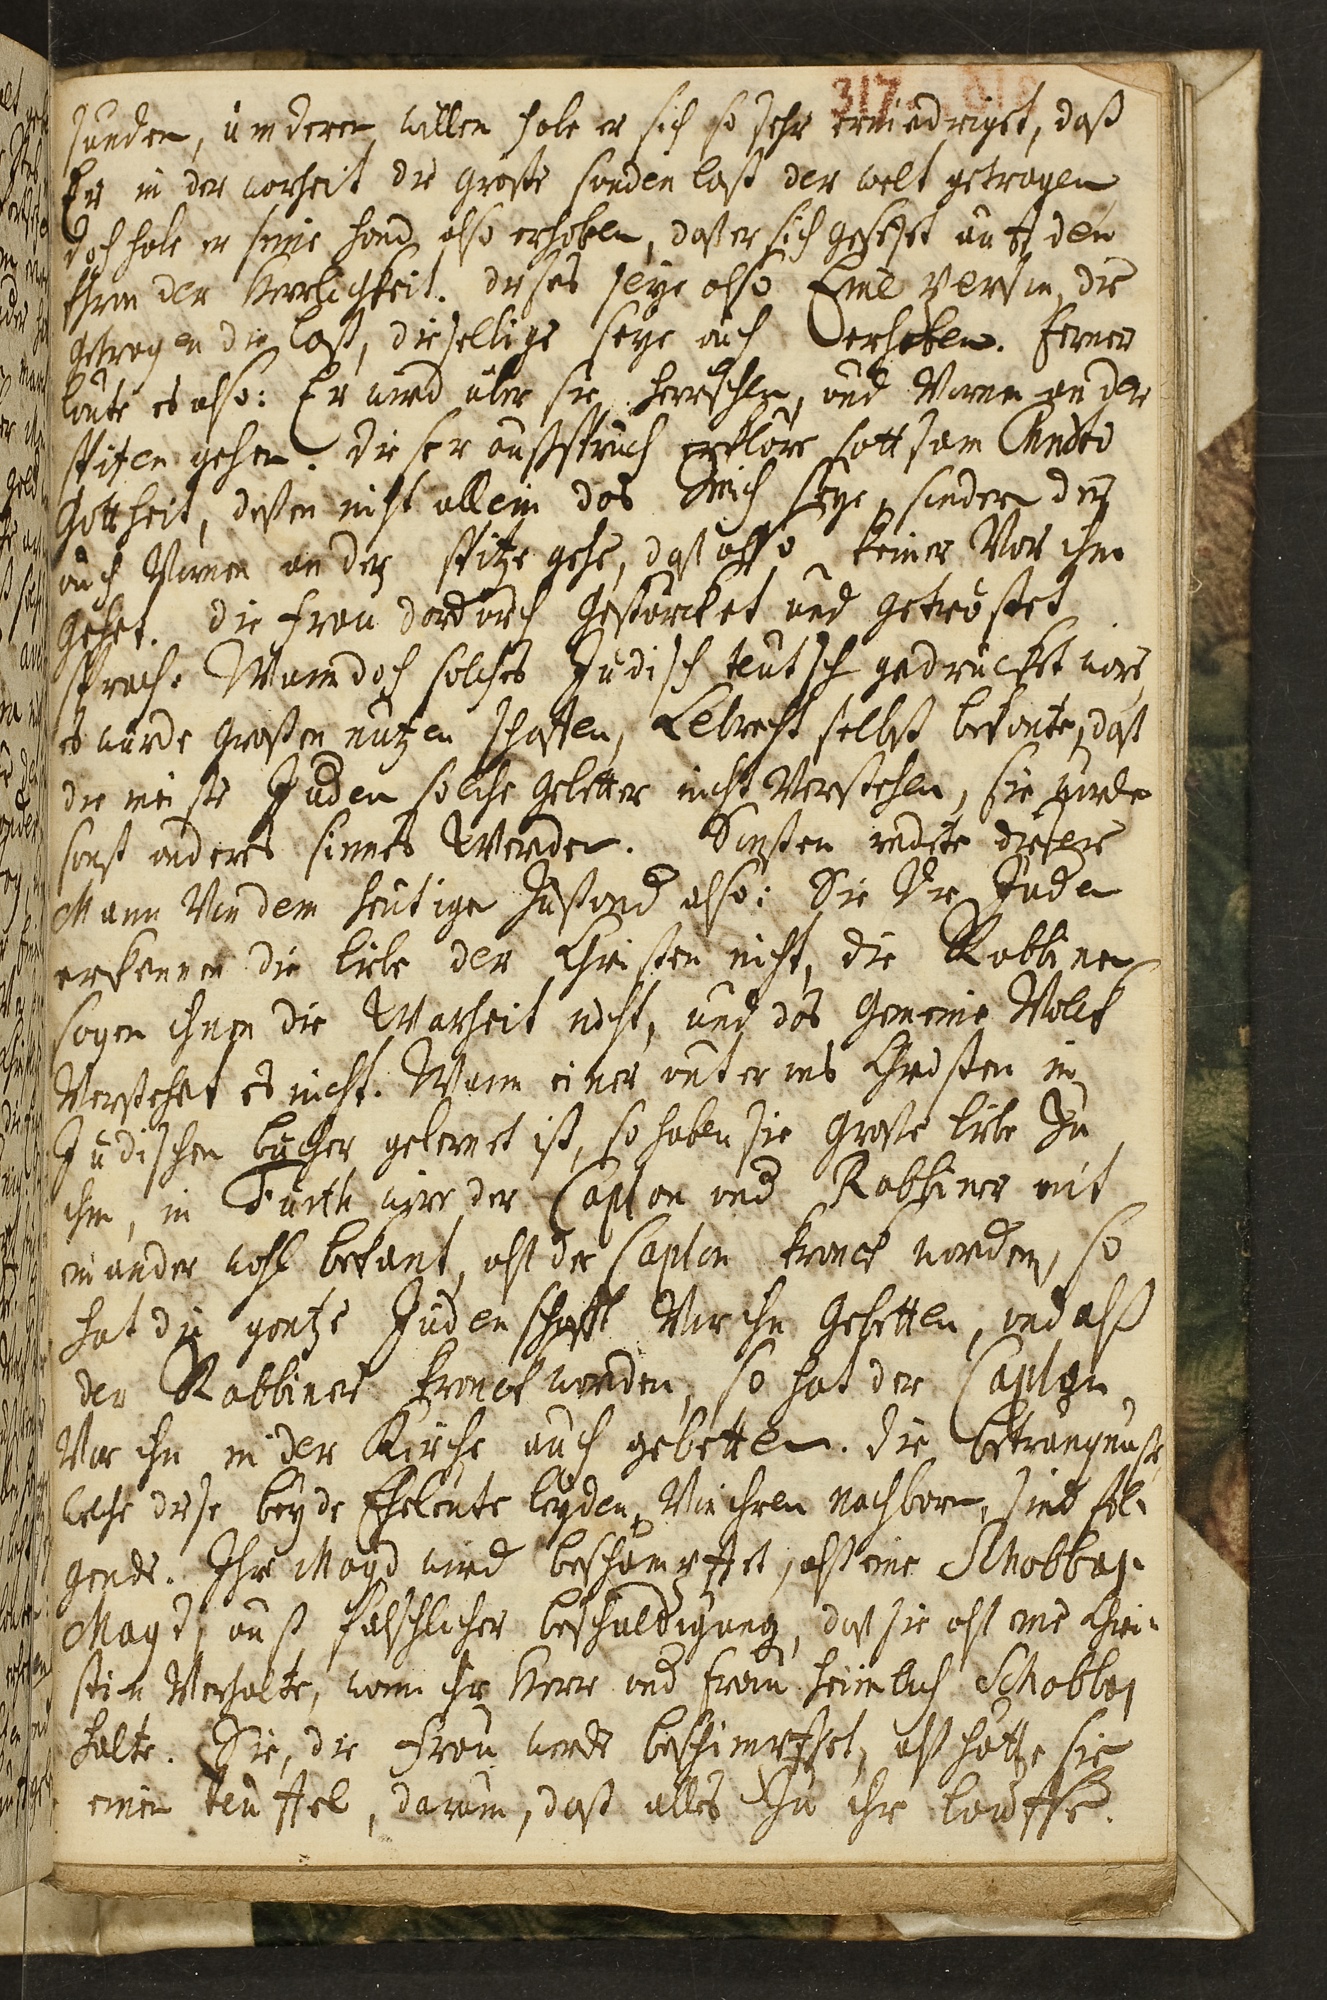 317
sünden, üm deren willen habe er sich so sehr erniedriget, daß
Er in der warheit die große sünden last der welt getragen
doch habe er seine hand also erhoben, daß er sich gesetzet auff den
thron der Herrlichkeit. dieses seye also Eine Person, die
getragen die last, dieselbige seye auch erhoben. ferner
laute es also: Er wird über sie herrschen, und Vornen an der
spitzen gehen. dieser außspruch erkläre sattsam Christi
Gottheit, deßen nicht allein das Reich seye, sondern der
auch Vornen an der spitze gehe, daß also keiner Vor ihm
gehet. die frau dardurch gestärcket und getröstet
sprach: Wann doch solches Jüdisch teutsch gedrucket wär,
es würde großen nutzen schaffen, Lebrecht selbst bekante, daß
die meiste Juden solche gebetter nicht Verstehen, sie würden
sonst anderes sinnes Werden. Sonsten redete dieser
Mann Von dem heutigen Zustand also: Sie die Juden
erkennen die liebe der Christen nicht, die Rabbinen
sagen ihnen die Warheit nicht, und das gemeine Volck
Verstehet es nicht. Wann einer unter uns Christen in
Jüdischen bücher gelernet ist, so haben sie große liebe zu
ihm, in Fürth wäre der Caplan und Rabbiner mit
einander wohl bekant, alß der Caplan kranck worden, so
hat die gantze Judenschafft Vor ihn gebetten, und alß
der Rabbiner kranck worden, so hat der Caplan
Vor ihn in der Kirche auch gebetten. die betrangnuße
welche diese beyde Eheleute leyden, Von ihren nachbarn, sind fol-
gende. Ihr Magd wird beschämpffet, alß eine Schabbas-
Magd, auß fälschlicher beschuldigung, daß sie alß eine Chri-
stin Verhalte, wann ihr Herr und frau heimlich Schabbas
halte. Sie, die frau werde beschimpffet, alß hätte sie
einen teuffel, darum, daß alles zu ihr lauffe.